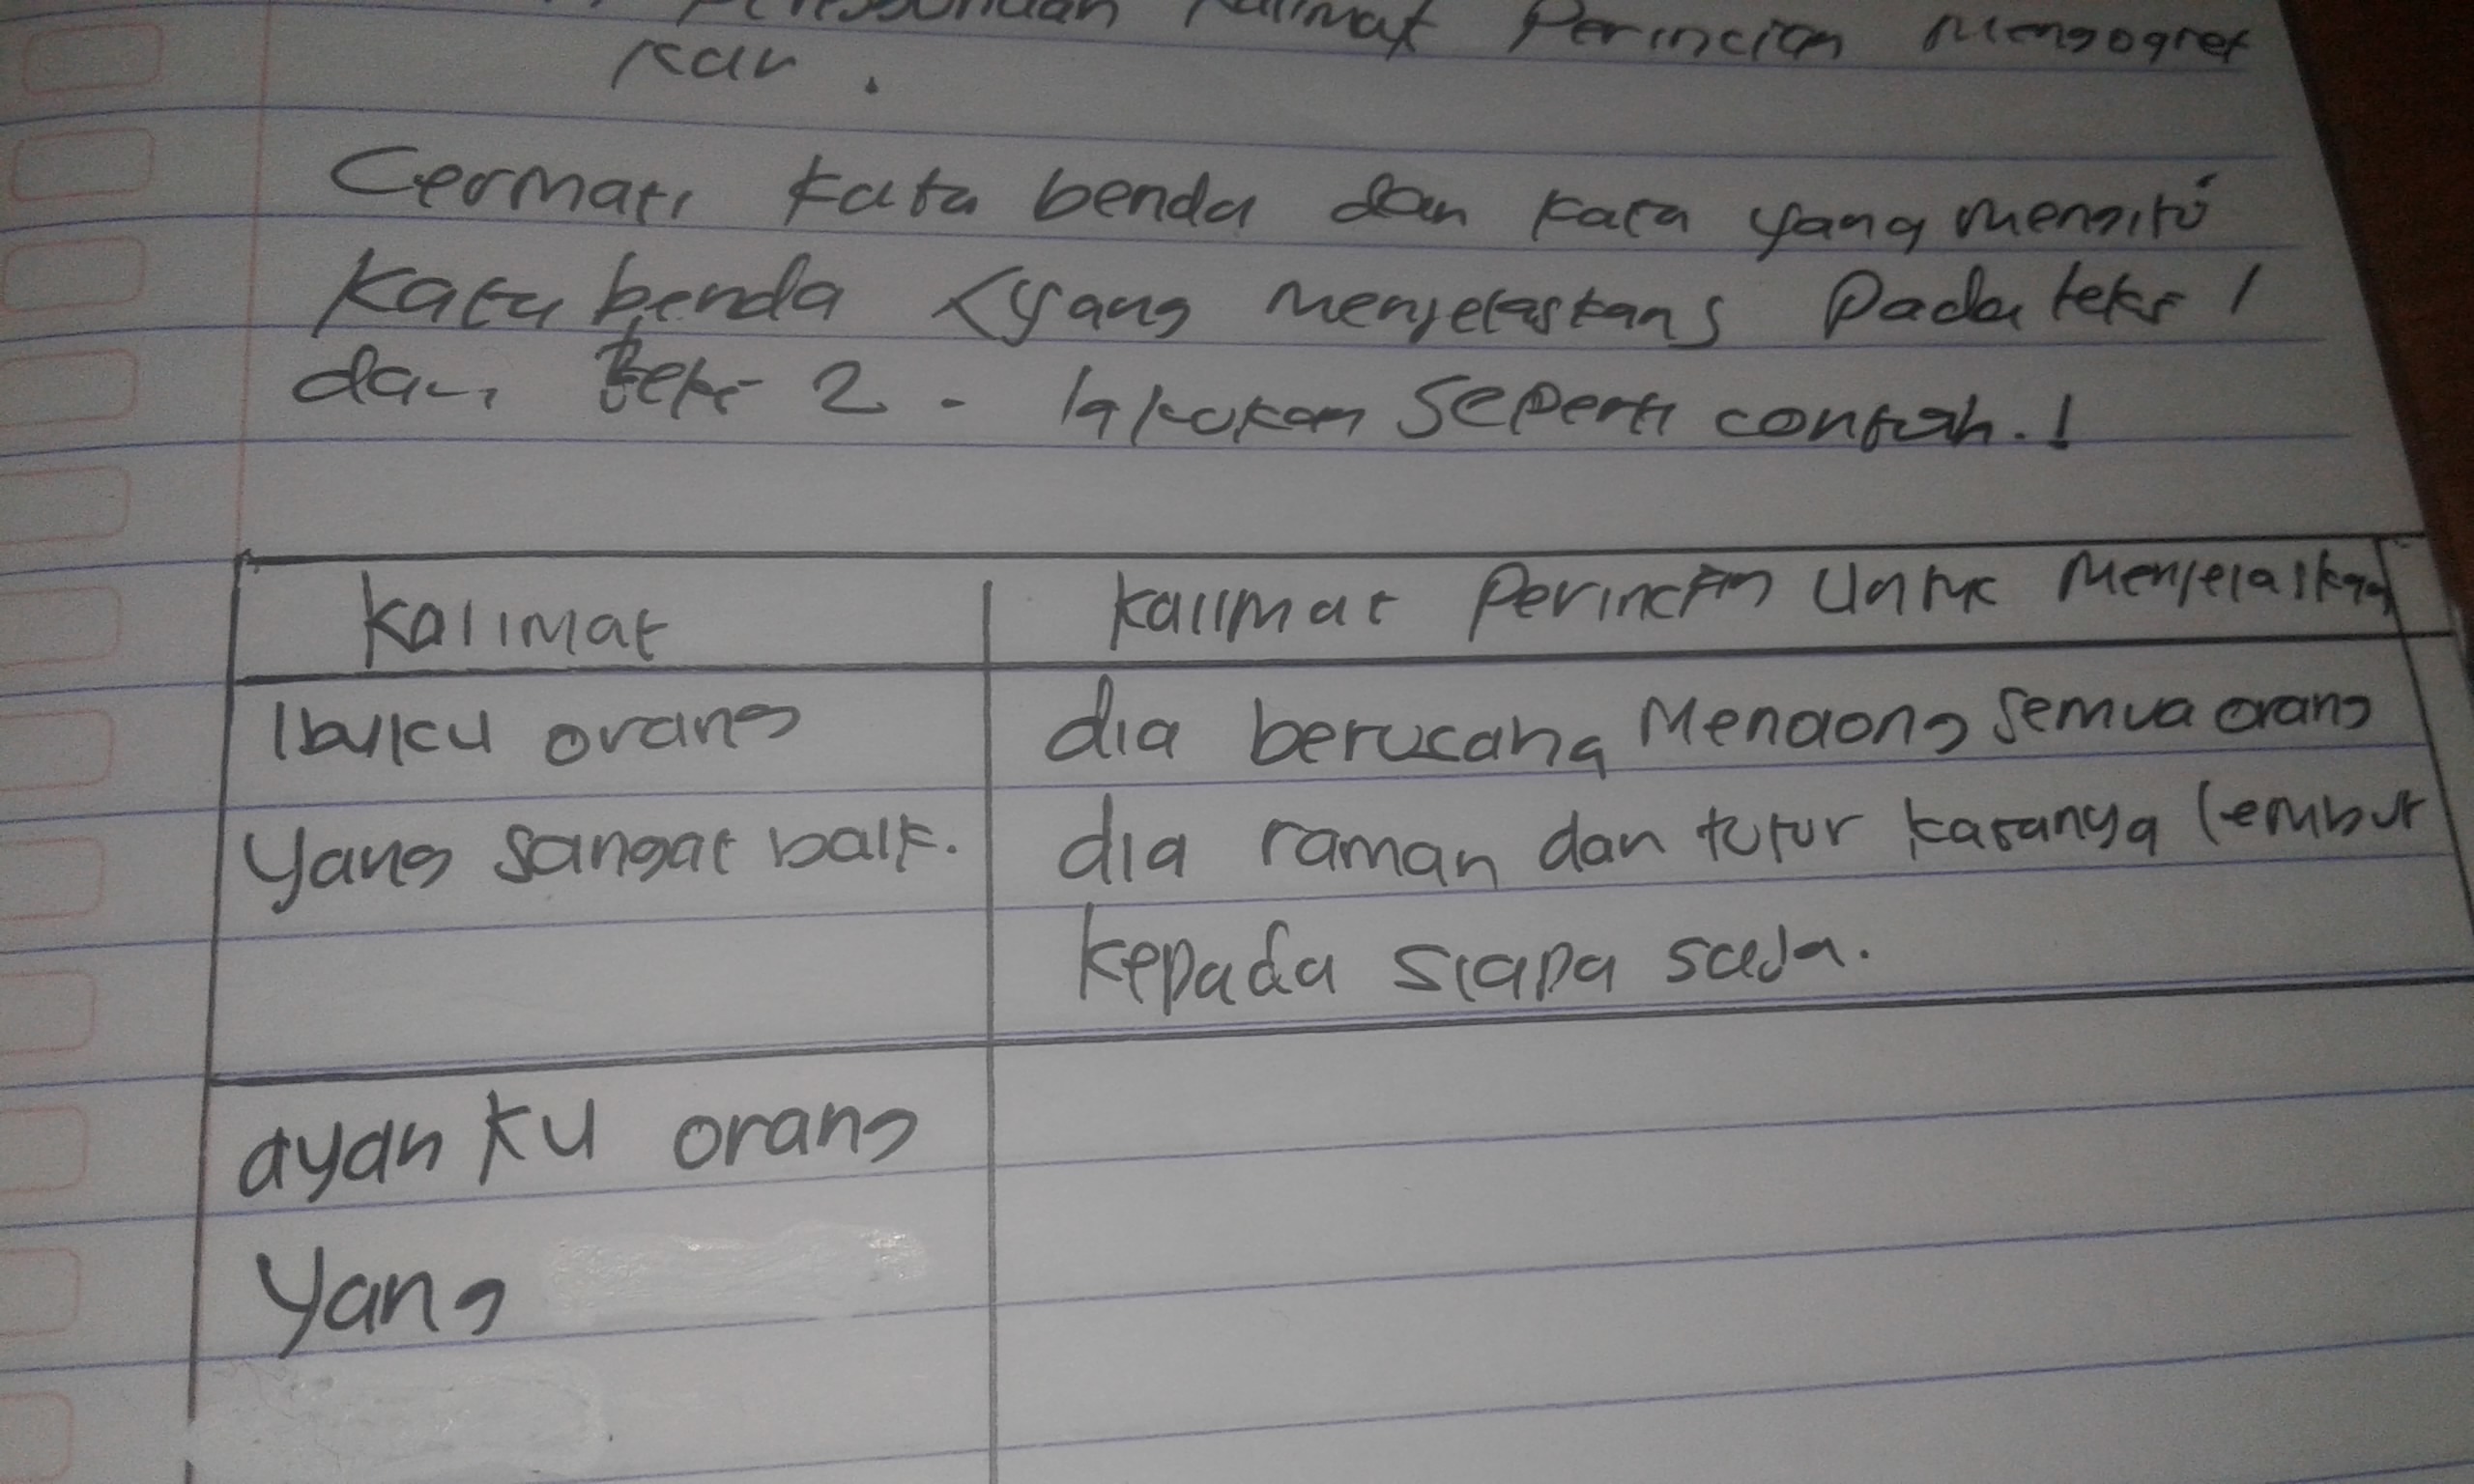 Kalimat Perincian Mengogret
kan .
Cermati kata benda dan kata yang mensifů
Kata benda <yang menjelaskans Pada teks 1
dan teks 2 - lakukan seperti contoh. !
Kalimat
kalimat Perincian Untuk Menjelaskan
Ibuku orang
dia berusaha Menolong semua orang
yang sangat baik.
dia ramah dan tutur katanya lembut
kepada siapa saja.
ayah ku orang
yang